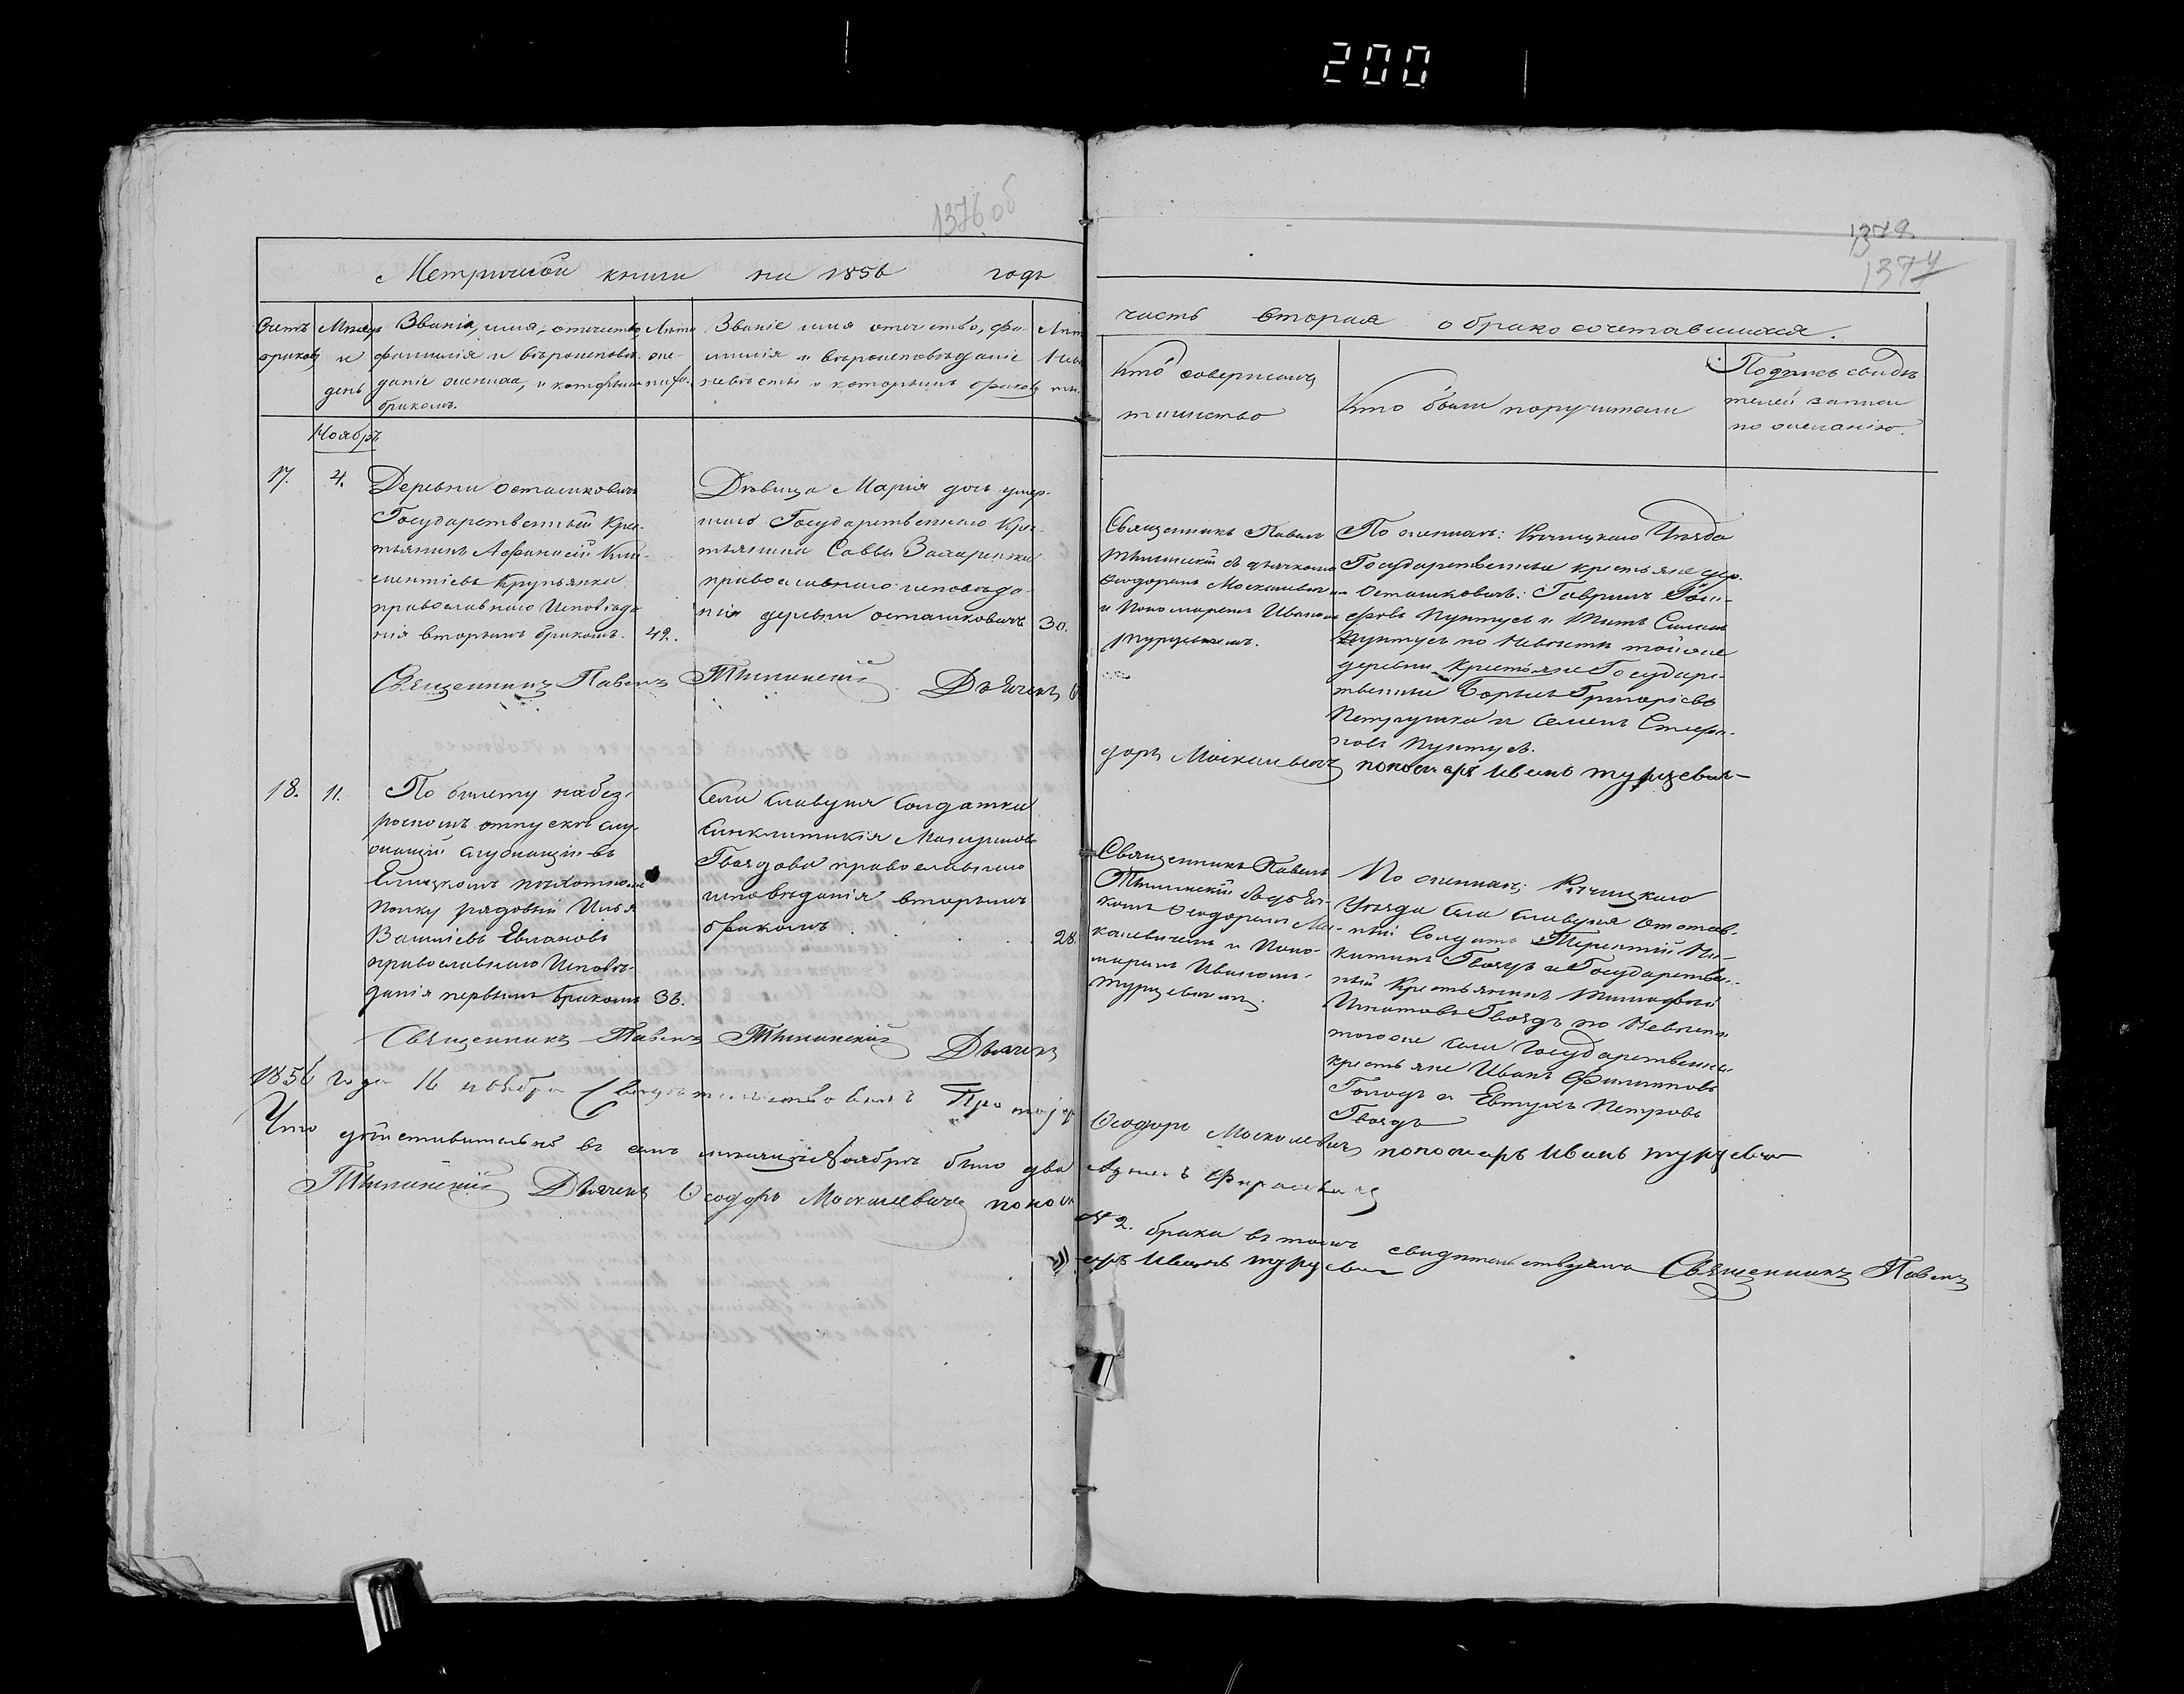 200
1376 об
1379
1377
Метрической книги на 1856 годъ
часть вторая о бракосочетавшихся.
Счетъ браковъ
Мѣсяцъ и день
Званіе, имя, отчество,
фамилія и вѣроисповѣ-
даніе жениха, и которымъ
бракомъ.
Лѣта
же-
ниха.
Званіе имя отечество, фа-
милія и вѣроисповѣданіе
невѣсты и которымъ бракомъ
Лѣт
Невѣ
ты.
Кто совершалъ
таинство
Кто были поручители
Подпись свидѣ
телей записи
по желанію.
Ноябрь
17.
4.
Деревни Осташковичъ
Государственный Крес-
тьянинъ Афанасій Кли-
ментіевъ Крупьянка
православнаго Исповѣда
нія вторымъ бракомъ.
42.
Дѣвица Марія дочь умер-
шаго Государственнаго Крес-
тьянина Саввы Захаренка
православнаго исповѣда-
нія деревни Осташковичъ
30.
Священникъ Павелъ
Тышинскій съ дьячкомъ
Ѳеодоромъ Москалевичемъ
и Пономаремъ Иваномъ
Турцевичемъ.
По женихѣ: Рѣчицкаго Уѣзда
Государственные крестьяне дер.
Осташковичъ: Гавріилъ
Пунтусъ и Титъ
Пунтусъ по Невѣстѣ тойже
деревни Крестьяне Государс-
твенные Борисъ Григоріевъ
Петрушка и Семенъ Стефа-
новъ Пунтусъ.
Священникъ Павелъ Тышинскій Дьячекъ Ѳ
доръ Москалевичъ пономарь Иванъ Турцевичъ
18.
11.
По билету на без-
срочномъ отпускѣ слу-
жащій служащій въ
Елецкомъ пѣхотномъ
Полку рядовый Илья
Василіевъ Евлановъ
православнаго Исповѣ-
данія первымъ бракомъ
36.
Села Славуня Солдатка
Синклитикія Максимова
Гвоздова православнаго
исповѣданія вторымъ
бракомъ
28.
Священникъ Павелъ
Тышинскій съ дьяч-
комъ Ѳеодоромъ Мос-
калевичемъ и Поно-
маремъ Иваномъ
Турцевичемъ.
По женихѣ: Рѣчицкаго
Уѣзда села Славуня Отстав-
ный Солдатъ Терентій Ни-
китинъ Гвоздъ и Государствен-
ный Крестьянинъ Тимофей
Игнатовъ Гвоздъ по Невѣстѣ
тогоже села Государственные
крестьяне Иванъ Филипповъ
Голодъ и Евтухъ Петровъ
Гвоздъ
Священникъ Павелъ Тышинскій Дьячекъ
Ѳеодоръ Москалевичъ пономарь Иванъ Турцевичъ
1856 года 16 ноября Свидѣтельствовалъ Протоіер
Что дѣйствительно въ семъ мѣсяцѣ Ноябрѣ было два
№ 2. брака въ томъ свидѣтельствуемъ Священникъ Павелъ
Тышинскій Дьячекъ Ѳеодоръ Москалевичъ поном
арь Иванъ Турцевичъ